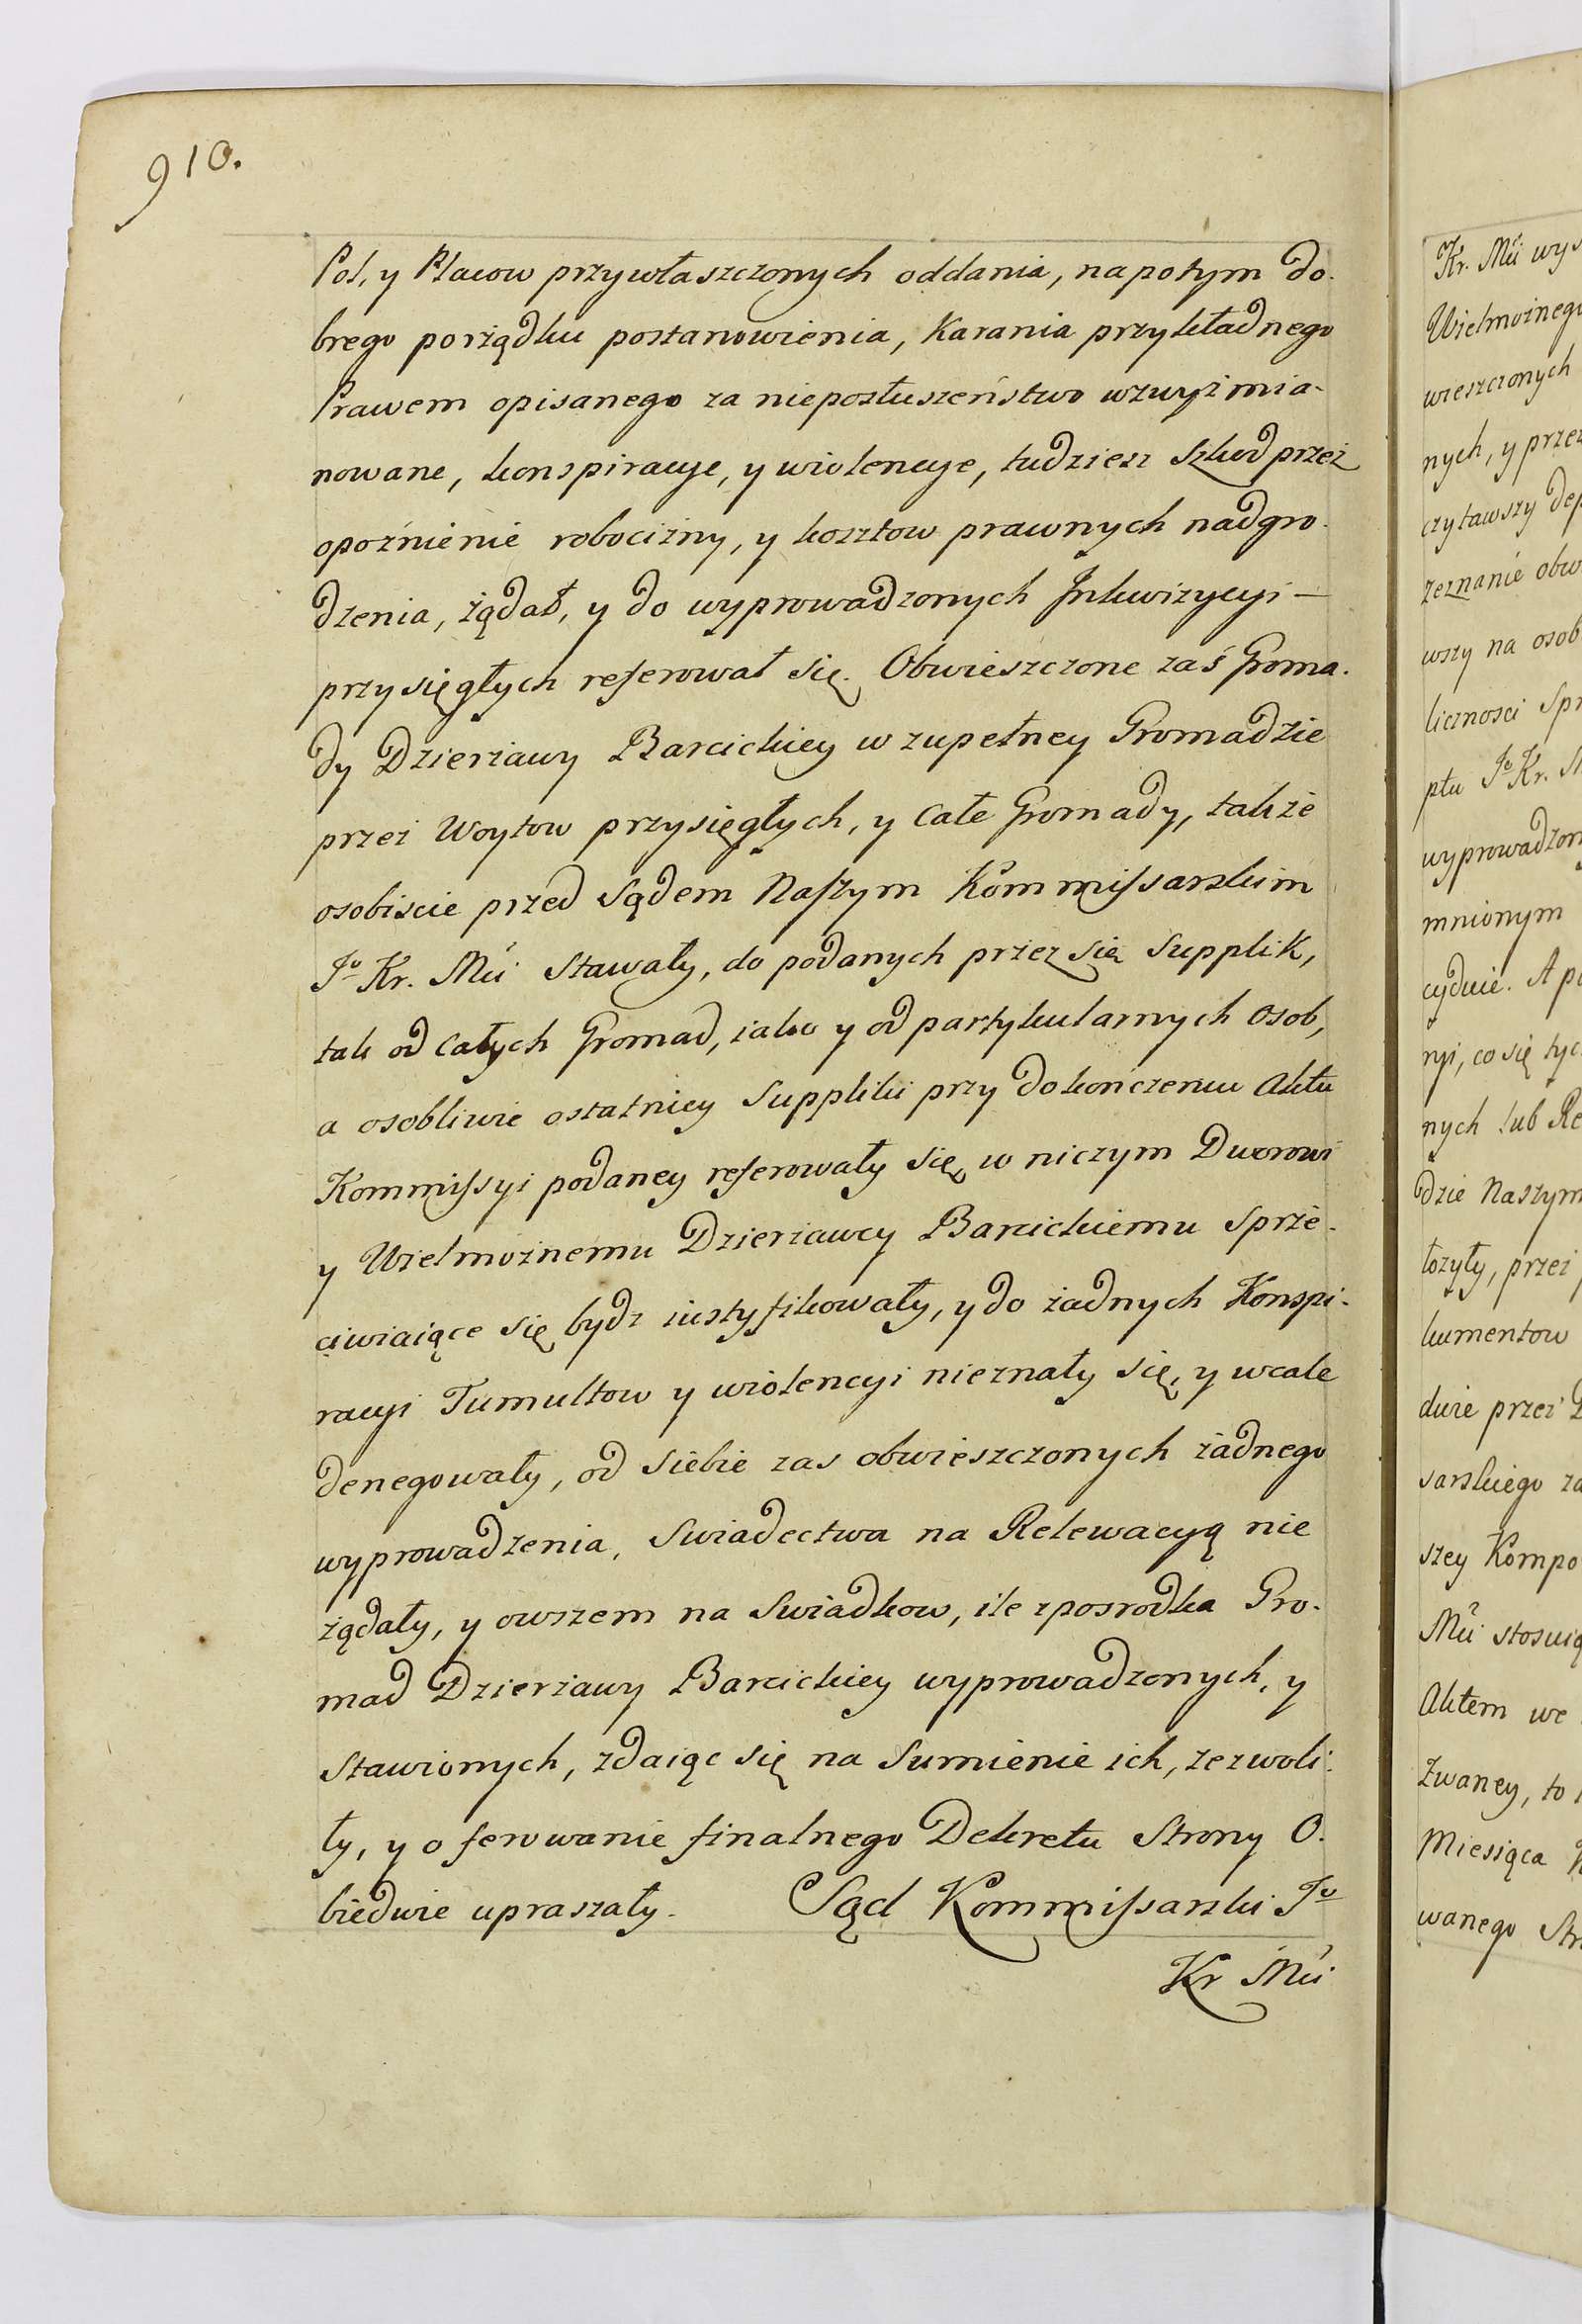 910.
Pol, y Placow przywłaszczonych oddania, napotym do-
brego porżądku postanowienia, Karania przykładnego
Prawem opisanego za nieposłuszeństwo wzwyżmia-
nowane, konspiracye, y wiolencye, tudziesz szkod przez
opoźnienie robocizny, y kosztow prawnych nadgro-
dzenia, żądał, y do wyprowadzonych Inkwizycyi —
przysięgłych referował się. Obwieszczone zaś Groma-
dy Dzierżawy Barcickiey w zupełney Gromadzie
przez Woytow przysięgłych, y Całe Gromady, także
osobiscie przed Sądem Naszym Kommissarskim
Jo Kr. Mći stawały, do podanych przez się Supplik,
tak od całych Gromad, iako y od partykularnych osob,
a osobliwie ostatniey Suppliki przy dokonczeniu Aktu
Kommissyi podaney referowały się, w niczym Dworowi
y Wielmożnemu Dzierżawcy Barcickiemu sprze-
ciwiaiące się bydz iustyfikowały, y do żadnych Konspi-
racyi Tumultow y wiolencyi nieznały się, y wcale
denegowały, od siebie zas obwieszczonych żadnego
wyprowadzenia, Swiadectwa na Relewacyą nie
żądały, y owszem na Swiadkow, ile zposrodka Gro-
mad Dzierżawy Barcickiey wyprowadzonych, y
stawionych, zdaiąc się na Sumienie ich, zezwoli-
ły, y o ferowanie finalnego Dekretu Strony O-
biedwie upraszały. Sąd Kommissarski Jo
Kr Mći
Kr. Mći wys
Wielmożnego
wieszczonych
nych, y przez
czytawszy dep
zeznanie obw
wszy na osob
licznosci Spr
ptu Jo Kr. M
wyprowadzon
mnionym
cyduie. A po
nyi, co się tyc
nych lub Re
dzie Naszym
łozyły, przez p
kumentow
duie przez D
sarskiego za
szey Kompo
Mći stosuią
Aktem we
Zwaney, to i
Miesiąca
wanego Str